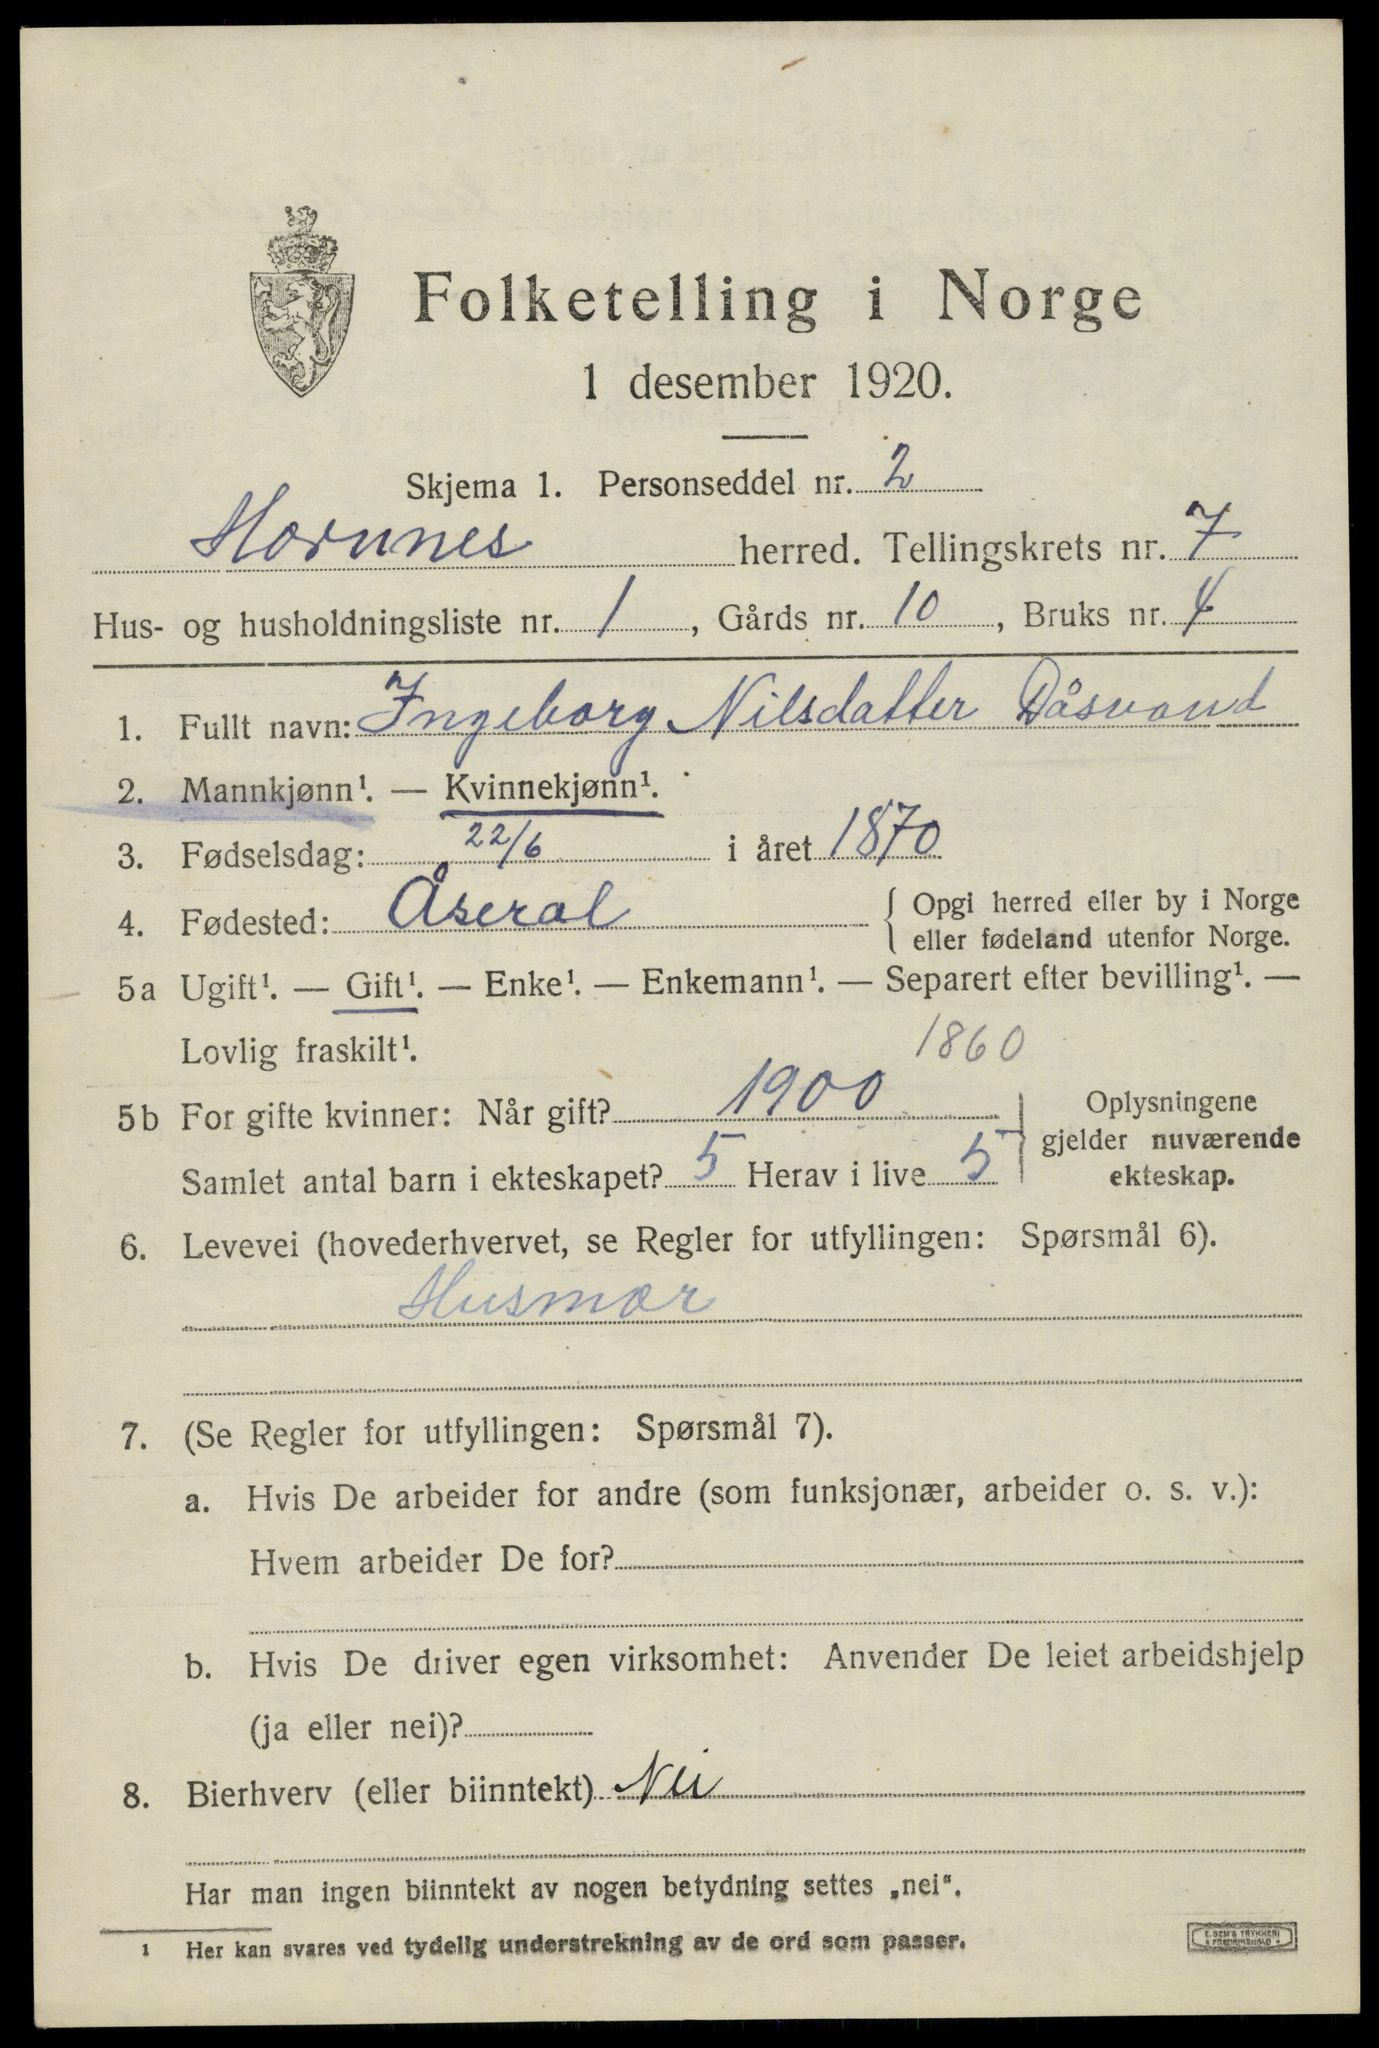 Folketelling i Norge
1 desember 1920.
Skjema 1. Personseddel nr. 2
Hornnes herred. Tellingskrets nr. 7
Hus- og husholdningsliste nr. 1, Gårds nr. 10, Bruks nr. 4
1. Fullt navn: Ingeborg Nilsdatter Dåsvand
2. Mannkjønn¹. — Kvinnekjønn¹.
3. Fødselsdag: 22/6 i året 1870
4. Fødested: Åseral { Opgi herred eller by i Norge
eller fødeland utenfor Norge.
5a Ugift¹. — Gift¹. — Enke¹. — Enkemann¹. — Separert efter bevilling¹. —
Lovlig fraskilt¹. 1860
5b For gifte kvinner: Når gift? 1900
Samlet antal barn i ekteskapet? 5 Herav i live 5
Oplysningene
gjelder nuværende
ekteskap.
6. Levevei (hovederhvervet, se Regler for utfyllingen: Spørsmål 6).
Husmor
7. (Se Regler for utfyllingen: Spørsmål 7).
a. Hvis De arbeider for andre (som funksjonær, arbeider o. s. v.):
Hvem arbeider De for?
b. Hvis De driver egen virksomhet: Anvender De leiet arbeidshjelp
(ja eller nei)?
8. Bierhverv (eller biinntekt) Nei
Har man ingen biinntekt av nogen betydning settes „nei“.
¹ Her kan svares ved tydelig understrekning av de ord som passer.
E. SEM'S TRYKKERI
FREDRIKSHALD